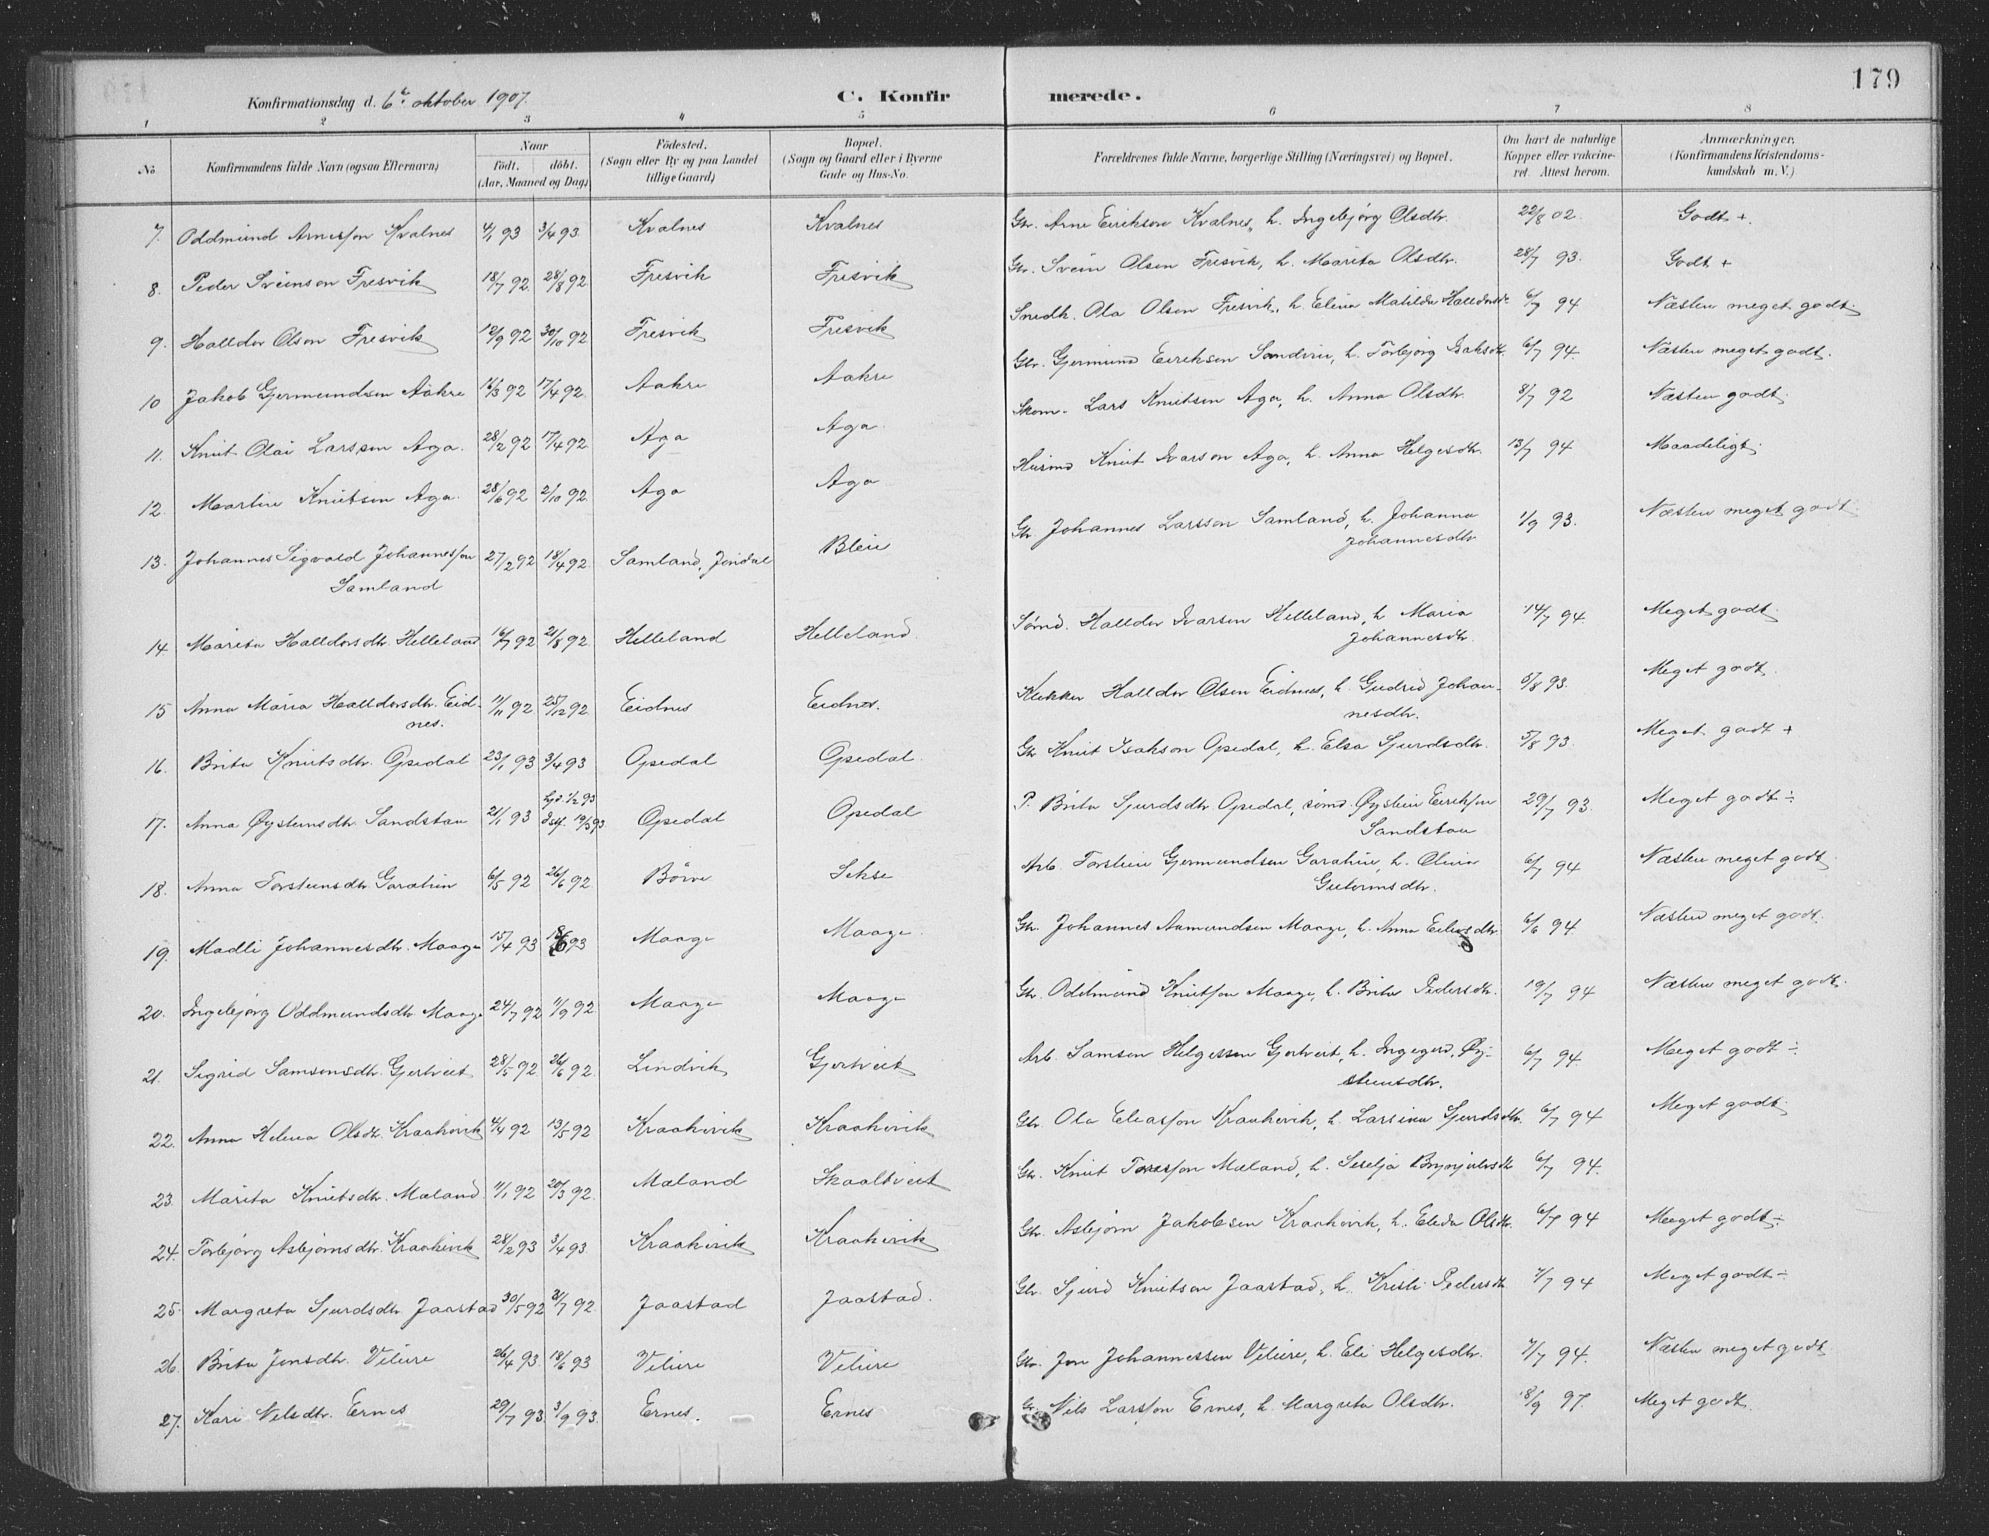 179
Konfirmationsdag d. 6te oktober 1907.
C. Konfirmerede.
1 2 3 4 5 6 7 8
No
Konfirmandens fulde Navn (ogsaa Efternavn)
Naar
födt. döbt.
(Aar, Maaned og Dag)
Födested.
(Sogn eller By og paa Landet
tillige Gaard)
Bopæl.
(Sogn og Gaard eller i Byerne
Gade og Hus-No.
Forældrenes fulde Navne, borgerlige Stilling (Næringsvei) og Bopæl.
Om havt de naturlige
Kopper eller vakcine-
ret. Attest herom.
Anmærkninger,
(Konfirmandens Kristendoms-
kundskab m. V.)
7. Oddmund Arnesson Kvalnes 4/1 93 3/4 93. Kvalnes Kvalnes Gbr. Arne Eirikson Kvalnes, h. Ingebjörg Olsdtr. 22/8 02. Godt +.
8. Peder Sveinson Fresvik 18/7 92 28/8 92. Fresvik Fresvik Gbr. Svein Olsen Fresvik, h. Marita Olsdtr. 28/7 93. Godt +
9. Halldor Olson Fresvik 12/9 92 30/10 92 Fresvik Fresvik Snedk. Ola Olson Fresvik, h. Elina Matilda Halldorsdtr 6/7 94 Næsten meget godt.
10 Jakob Gjermundsen Aakre 16/3 92 17/4 92. Aakre Aakre Gbr. Gjermund Eiriksen Sandvin, h. Torbjörg Isaksdtr. 6/7 94. Næsten meget godt.
11. Knut Olai Larssen Aga. 28/2 92 17/4 92. Aga Aga. Skom. Lars Knutsen Aga, h. Anna Olsdtr. 8/7 92 Næsten godt.
12. Martin Knutsen Aga. 28/6 92 2/10 92. Aga Aga Husmd Knut Ivarson Aga, h. Anna Helgesdtr. 13/7 94 Maadeligt.
13. Johannes Sigvald Johannesson
Samland 27/2 92 18/4 92. Samland, Jondal Bleie Gbr. Johannes Larsson Samland, h. Johanna
Johannesdtr. 1/9 93. Næsten meget godt.
14. Marita Halldorsdtr. Helleland 16/7 92 21/8 92. Helleland Helleland. Sömd. Halldor Ivarsen Helleland, h. Maria
Johannesdtr. 14/7 94. Meget godt.
15 Anna Maria Halldorsdtr. Eid-
nes. 11/11 92 25/12 92 Eidnes Eidnes. Klokker Halldor Olsen Eidnes, h. Gudrid Johan-
nesdtr. 5/8 93. Meget godt.
16. Brita Knutsdtr. Opedal 23/1 93 3/4 93 Opedal Opedal. Gbr. Knut Isakson Opedal, h. Elsa Sjurdsdtr. 5/8 93. Meget godt +
17. Anna Øysteinsdtr. Sandstøu 21/1 93 hjd. 1/2 93
dsf. 19/3 93 Opedal Opedal P. Brita Sjurdsdtr. Opedal, sömd. Øystein Eirikson
Sandstøu 29/7 93. Meget godt ÷
18. Anna Torsteinsdtr. Garathun 6/5 92 26/6 92 Börve Sekse Arb. Torstein Gjermundsen Garathun, h. Olina
Gutormsdtr. 6/7 94 Næsten meget godt.
19. Madli Johannesdtr. Maage 15/4 93 18/6 93 Maage Maage. Gbr. Johannes Aamundsen Maage, h. Anna Eilevsdtr 6/6 94 Næsten meget godt.
20. Ingebjörg Oddmundsdtr. Maage 24/7 92 11/9 92 Maage Maage Gbr. Oddmund Knutson Maage, h. Brita Pedersdtr. 19/7 94 Næsten meget godt.
21. Sigrid Samsonsdtr. Gjertveit 28/5 92 26/6 92. Lindvik Gjertveit Arb. Samson Helgessen Gjertveit, h. Ingegerd Øy-
steinsdtr. 6/7 94. Meget godt ÷
22. Anna Helena Olsdtr. Kraakevik 4/4 92 13/5 92 Kraakevik Kraakevik Gbr. Ola Eliasson Kraakevik, h. Larsina Sjurdsdtr. 6/7 94 Meget godt.
23. Marita Knutsdtr. Mæland 11/1 92 20/3 92. Mæland Skaaltveit Gbr. Knut Toresson Mæland, h. Serelja Brynjulvsdtr 6/7 94.
24. Torbjörg Asbjørnsdtr. Kraakevik 28/2 93 3/4 93. Kraakevik Kraakevik Gbr. Asbjørn Jakobsen Kraakevik, h. Eleda Olsdtr. 6/7 94 Meget godt ÷
25. Margreta Sjurdsdtr. Jaastad 30/5 92 3/7 92. Jaastad Jaastad. Gbr. Sjurd Knutson Jaastad, h. Kristi Pedersdtr 7/7 94 Meget godt ÷
26. Brita Jonsdtr. Velure 26/4 93. 18/6 93 Velure Velure Gbr. Jon Johannessen Velure, h. Eli Helgesdtr. 7/7 94. Næsten meget godt.
27. Kari Nilsdtr. Ernes 29/7 93. 3/9 93. Ernes. Ernes Gbr. Nils Larsson Ernes, h. Margreta Olsdtr. 18/9 97. Meget godt.